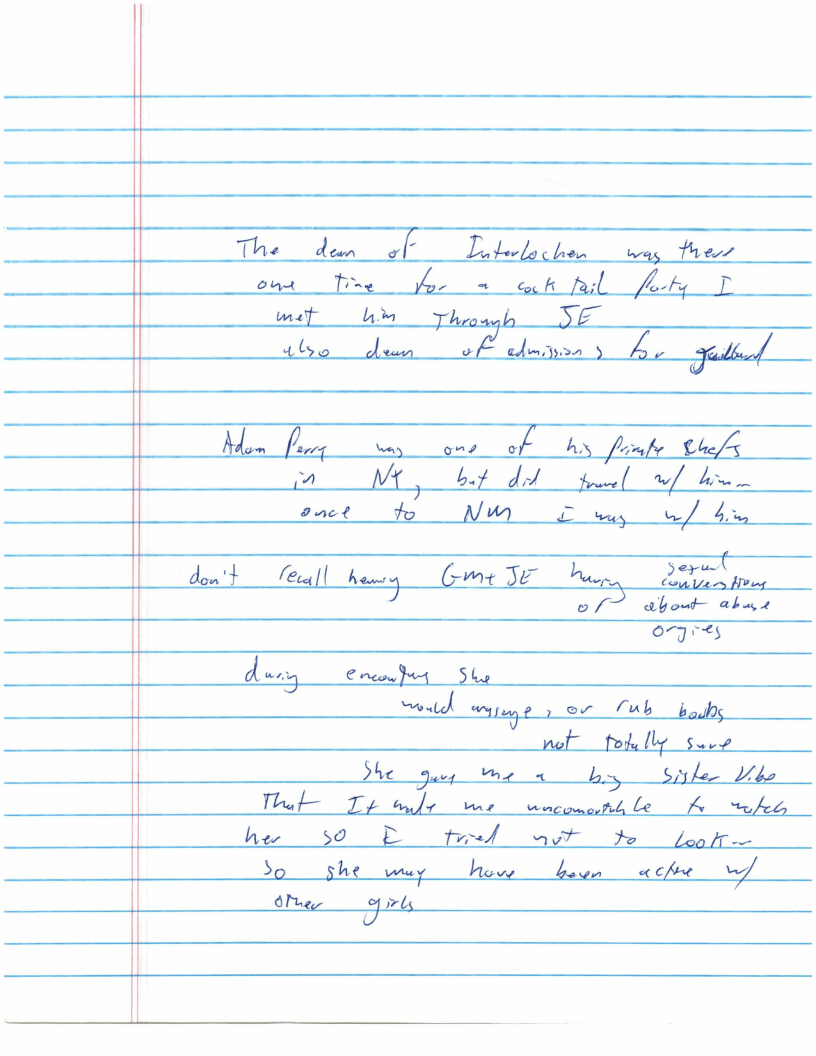 The dean of Interlochen was there
one time for a cock tail party I
met him through JE
also dean of admissions for
Adam Perry was one of his private chefs
in NY, but did travel w/ him -
once to NM I was w/ him
don't recall hearing GM + JE having sexual conversations
or about abuse
orgies
during encounters she
would massage, or rub boobs
not totally sure
She gave me a big sister vibe
That It made me uncomortable to watch
her so I tried not to look -
so she may have been active w/
other girls